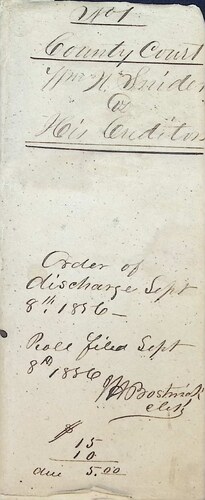 County Court
Wm H Snider
Vs
His Creditors
Order of
discharge Sept
8th 1856 —
Roll filed Sept
8th 1856
Bostwick
clerk
$ 15
10
due 5.00